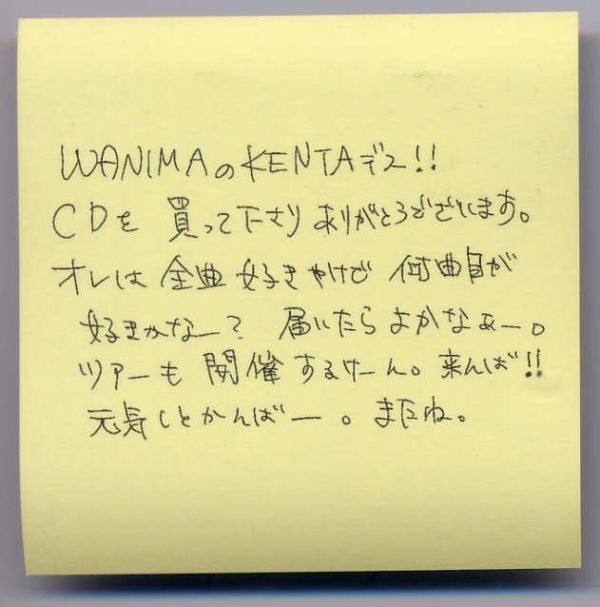 WANIMAのKENTAデス!!
CDを 買って下さり ありがとうございます。
オレは 全曲 好きやけど 何曲目が
好きかなー? 届いたらよかなぁー。
ツアーも 開催 するけーん。来んば!!
元気しとかんばー。またね。